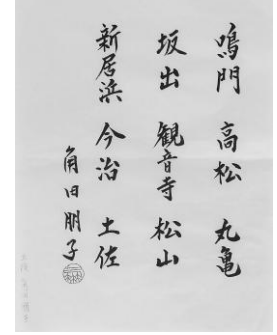 鳴門 高松 丸亀
坂出 観音寺 松山
新居浜 今治 土佐
角田朋子